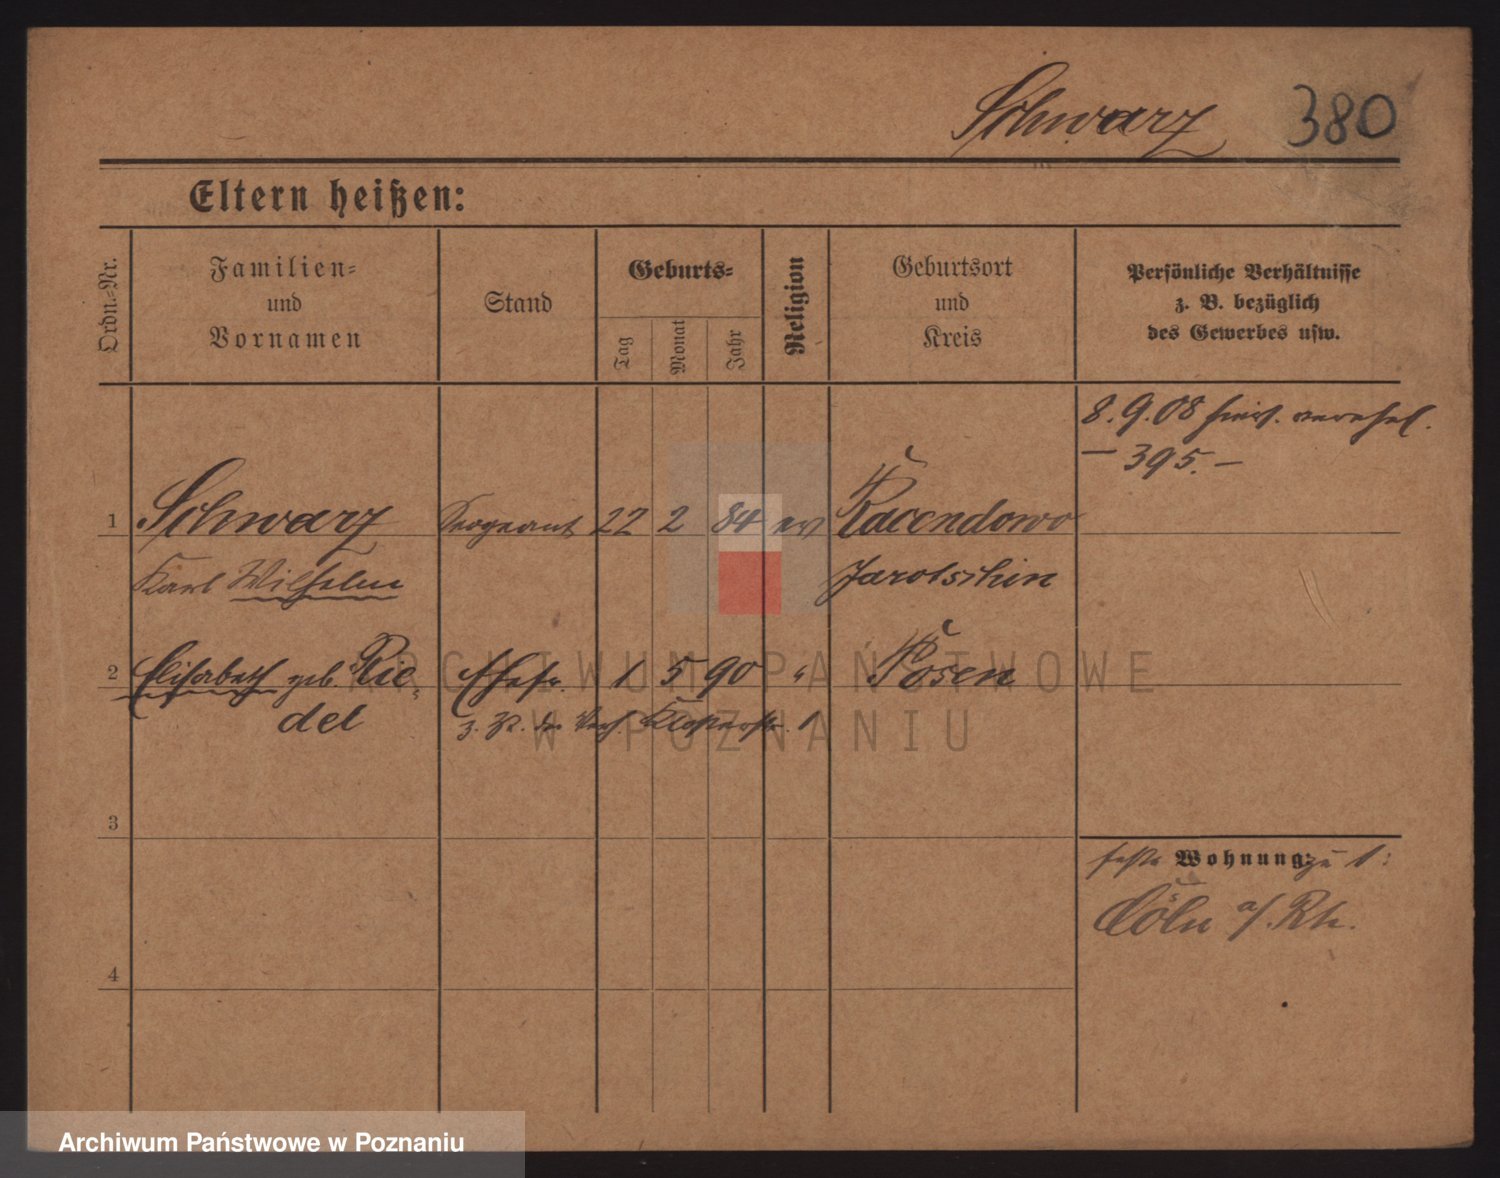 Schwarz 380
Eltern heißen:
Ordn.-Nr.
Familien-
und
Vornamen
Stand
Geburts-
Tag
Monat
Jahr
Religion
Geburtsort
und
Kreis
Persönliche Verhältnisse
z. B. bezüglich
des Gewerbes usw.
8.9.08 hier verehel.
— 395. —
1 Schwarz Sergeant 22 2 84 ev Racendowo
Karl Wilhelm Jarotschin
2 Elisabeth geb. Rie- Ehefr. 1 5 90 " Posen
del z. Zt. Klosterstr. 1
3
feste Wohnung zu 1:
Cöln a/Rh.
4
ARCHIWUM PAŃSTWOWE
W POZNANIU
Archiwum Państwowe w Poznaniu